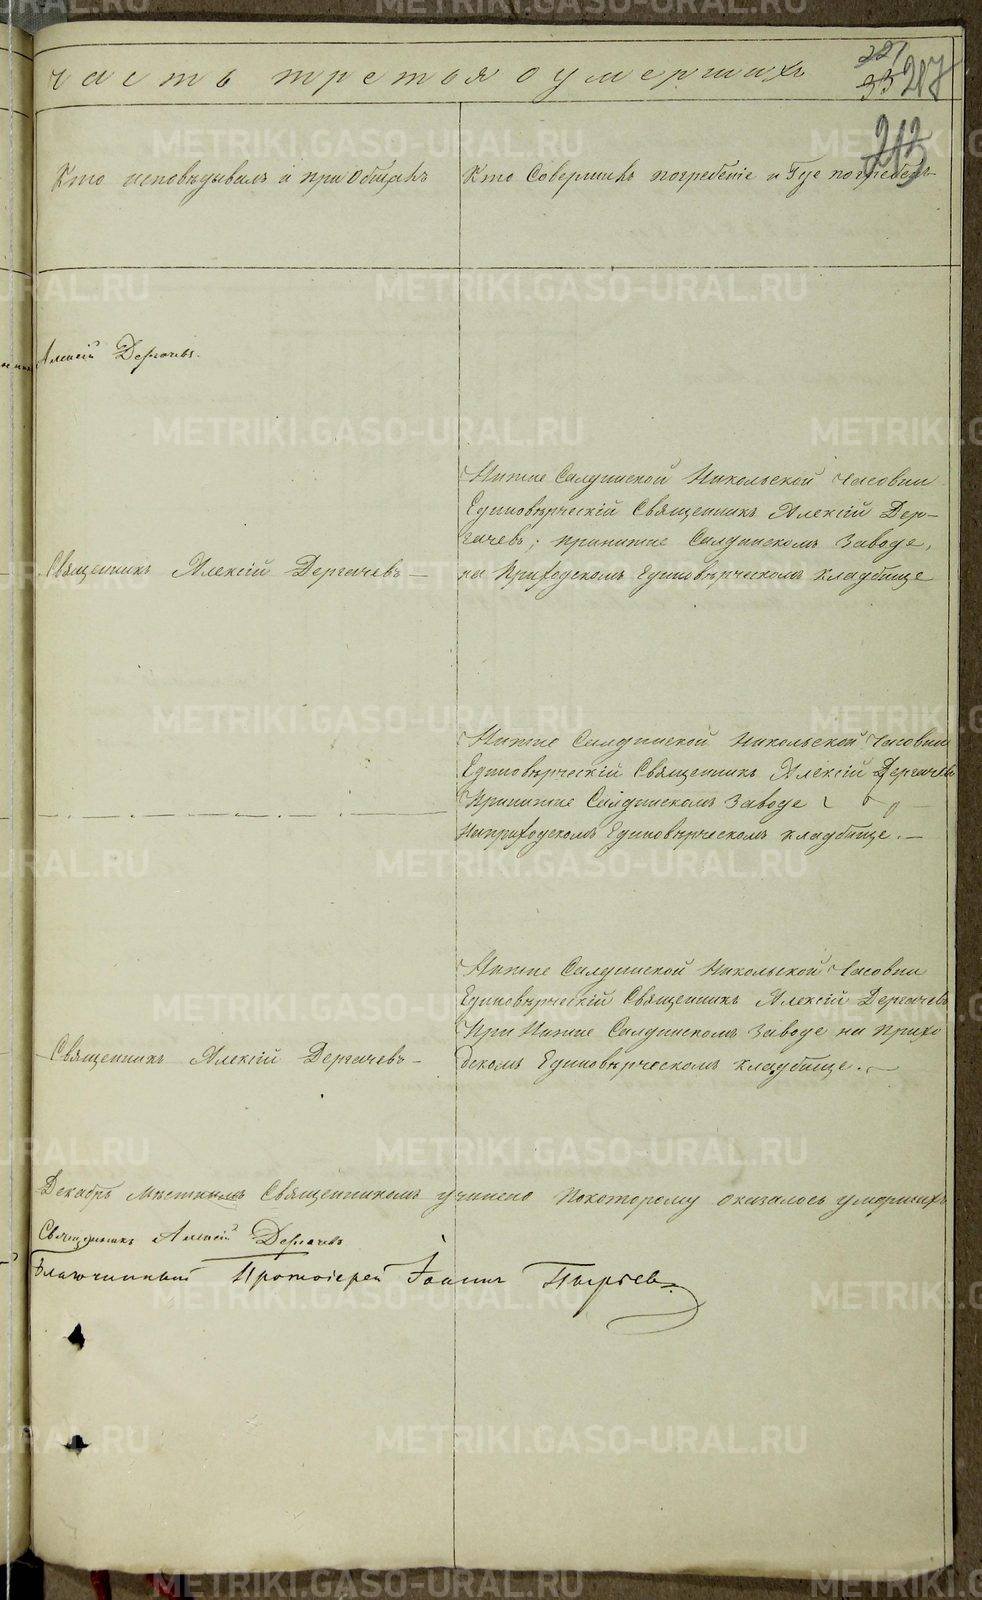 часть третья о умершихъ
221
33 217
213
Кто исповѣдывалъ и приобщалъ
Кто Совершилъ погребеніе и Где погребенъ
Алексій Дергачевъ.
Нижне Салдинской Никольской Часовни
Единовѣрческій Священникъ Алексій Дер-
гачевъ; принижне Салдинскомъ Заводе,
на Приходскомъ Единовѣрческомъ кладбище
Священникъ Алексій Дергачевъ —
Нижне Салдинской Никольской Часовни
Единовѣрческій Священникъ Алексій Дергачевъ
Принижне Салдинскомъ Заводе
Наприходскомъ Единовѣрческомъ кладбище. —
Нижне Салдинской Никольской Часовни
Единовѣрческій Священникъ Алексій Дергачевъ
При Нижне Салдинскомъ Заводе на Прихо
дскомъ Единовѣрческомъ кладбище. —
Священникъ Алексій Дергачевъ —
Декабрь Мѣстнымъ Священникомъ учинено Покоторому оказалось умершихъ
Священникъ Алексій Дергачевъ
Благочинный Протоіерей Іоаннъ Пырьевъ
METRIKI.GASO-URAL.RU